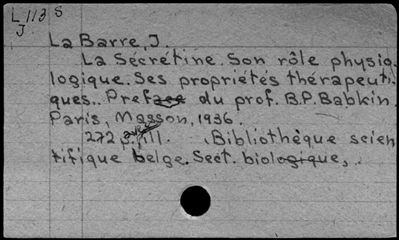 L 113 S
J.
La Barre, J.
La Sécrétine. Son rôle physio-
logique. Ses propriétés thérapeuti-
ques.. Preface du prof. B.P. Babkin.
Paris, Masson, 1936.
272 p. ill. (Bibliothèque scien
tifique belge. Sect. biologique,.